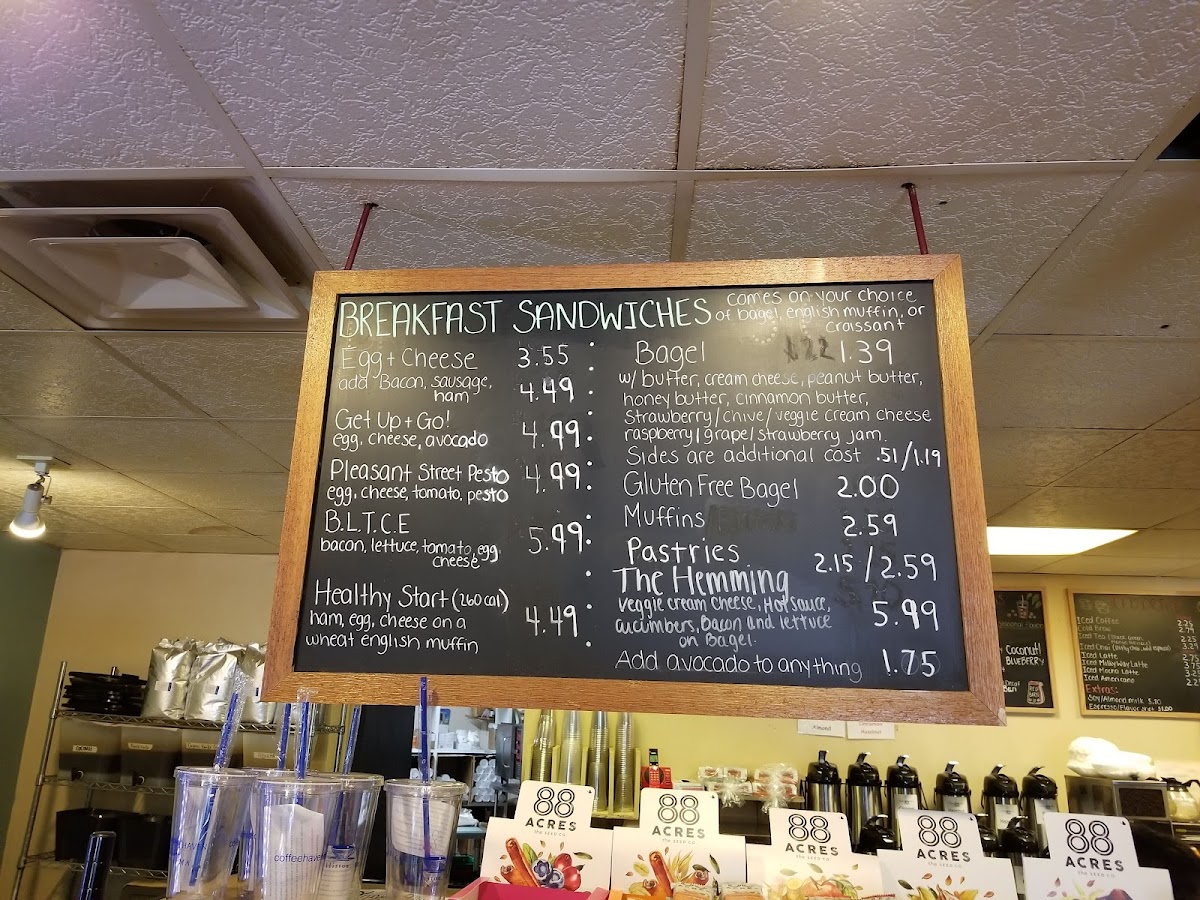 BREAKFAST SANDWICHES comes on your choice
of bagel, english muffin, or
croissant
Egg + Cheese 3.55
add Bacon, sausage,
ham 4.49
Get Up + Go! 4.99
egg, cheese, avocado
Pleasant Street Pesto 4.99
egg, cheese, tomato, pesto
B.L.T.C.E 5.99
bacon, lettuce, tomato, egg,
cheese
Healthy Start (260 cal.)
ham, egg, cheese on a 4.49
wheat english muffin
Bagel 1.39
w/ butter, cream cheese, peanut butter,
honey butter, cinnamon butter,
Strawberry/chive/veggie cream cheese
raspberry/grape/strawberry jam.
Sides are additional cost .51/1.19
Gluten Free Bagel 2.00
Muffins 2.59
Pastries 2.15/2.59
The Hemming
veggie cream cheese, Hot Sauce, 5.99
cucumbers, Bacon and lettuce
on Bagel.
Add avocado to anything 1.75
Coconut
BLUEBERRY
Iced Coffee
Cold Brew
Iced Latte
Iced Milky Way Latte
Iced Mocha Latte
Iced Americano
Extras:
Soy/Almond milk
Espresso/Flavor shot
Almond
Hazelnut
coffeehaven
88
ACRES
the seed co.
88
ACRES
the seed co.
88
ACRES
the seed co.
88
ACRES
the seed co.
88
ACRES
the seed co.